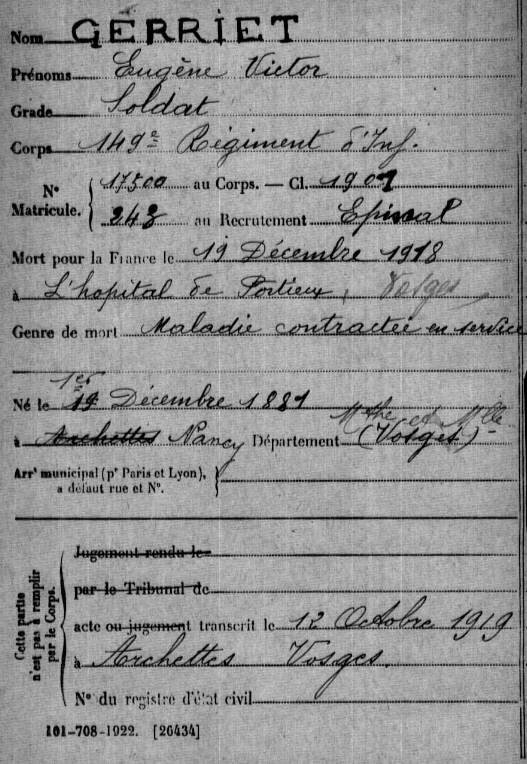 Nom GERRIET
Prénoms Eugène Victor
Grade Soldat
Corps 149e Régiment d'Inf.
N° Matricule. 17500 au Corps. — Cl. 1901
243 au Recrutement Epinal
Mort pour la France le 19 Décembre 1918
à L'hopital de Portieux, Vosges
Genre de mort Maladie contractée en service
1er
Né le 19 Décembre 1881
Mthe et Mlle
à Archettes Nancy Département (Vosges)
Arrt municipal (pr Paris et Lyon),
à défaut rue et N°.
Cette partie n'est pas à remplir par le Corps.
Jugement rendu le
par le Tribunal de
acte ou jugement transcrit le 12 Octobre 1919
à Archettes Vosges.
N° du registre d'état civil
101-708-1922. [26434]